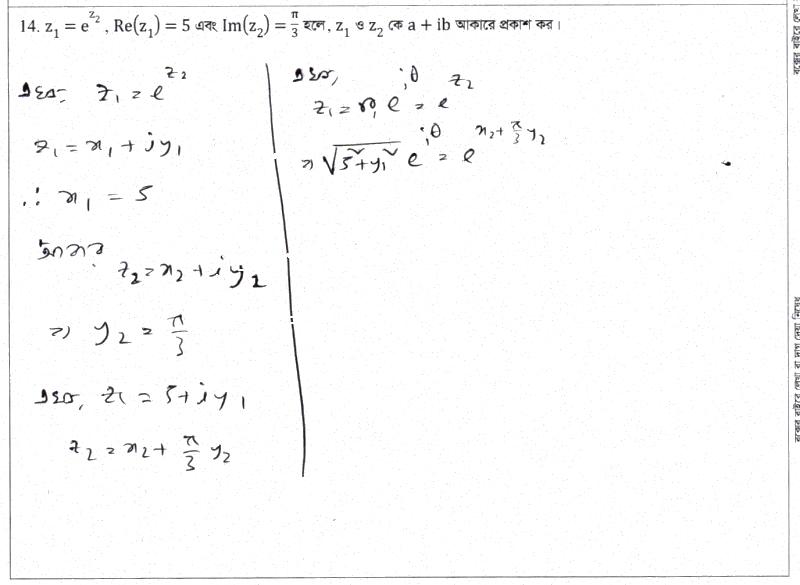 14. z₁ = e^z₂ , Re(z₁) = 5 এবং Im(z₂) = π/3 হলে, z₁ ও z₂ কে a + ib আকারে প্রকাশ কর।
z₁ = e^z₂
z₁ = x₁ + iy₁
∴ x₁ = 5
আবার
z₂ = x₂ + iy₂
⇒ y₂ = π/3
z₁ = 5 + iy₁
z₂ = x₂ + π/3 y₂
z₁ = r₁ e^iθ = e^z₂
⇒ √(5² + y₁²) e^iθ = e^(x₂ + π/3 y₂)